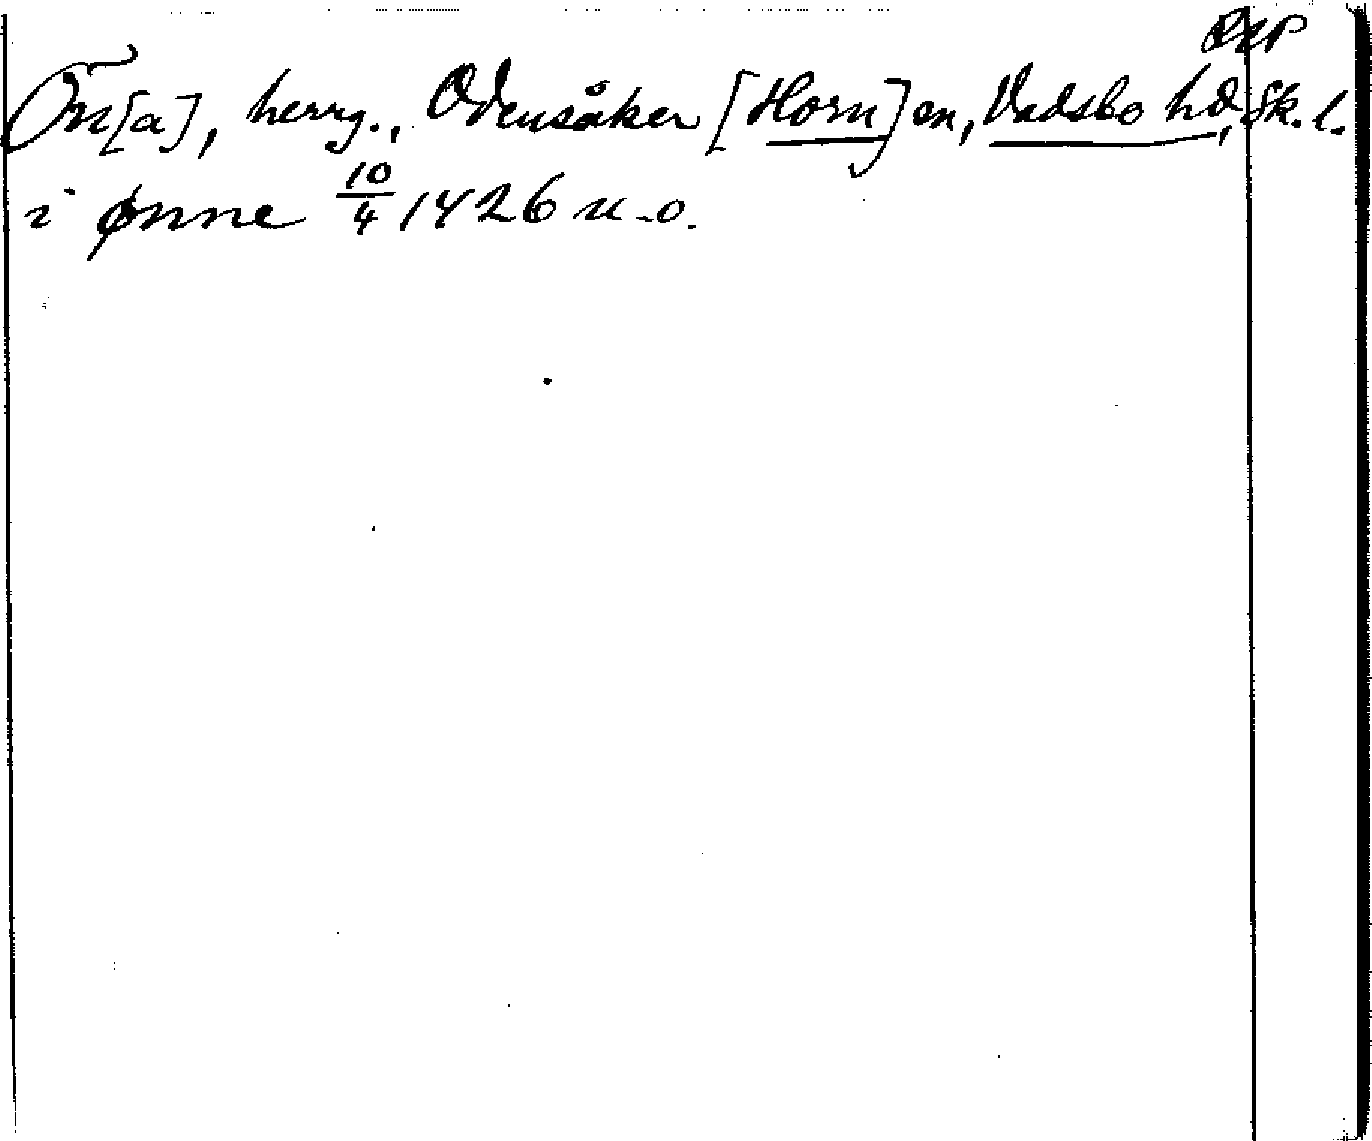 Ön[a], herrg., Odensåker [Horn] sn, Vadsbo hd, Sk. l.
i ønne 10/4 1426 u. o.